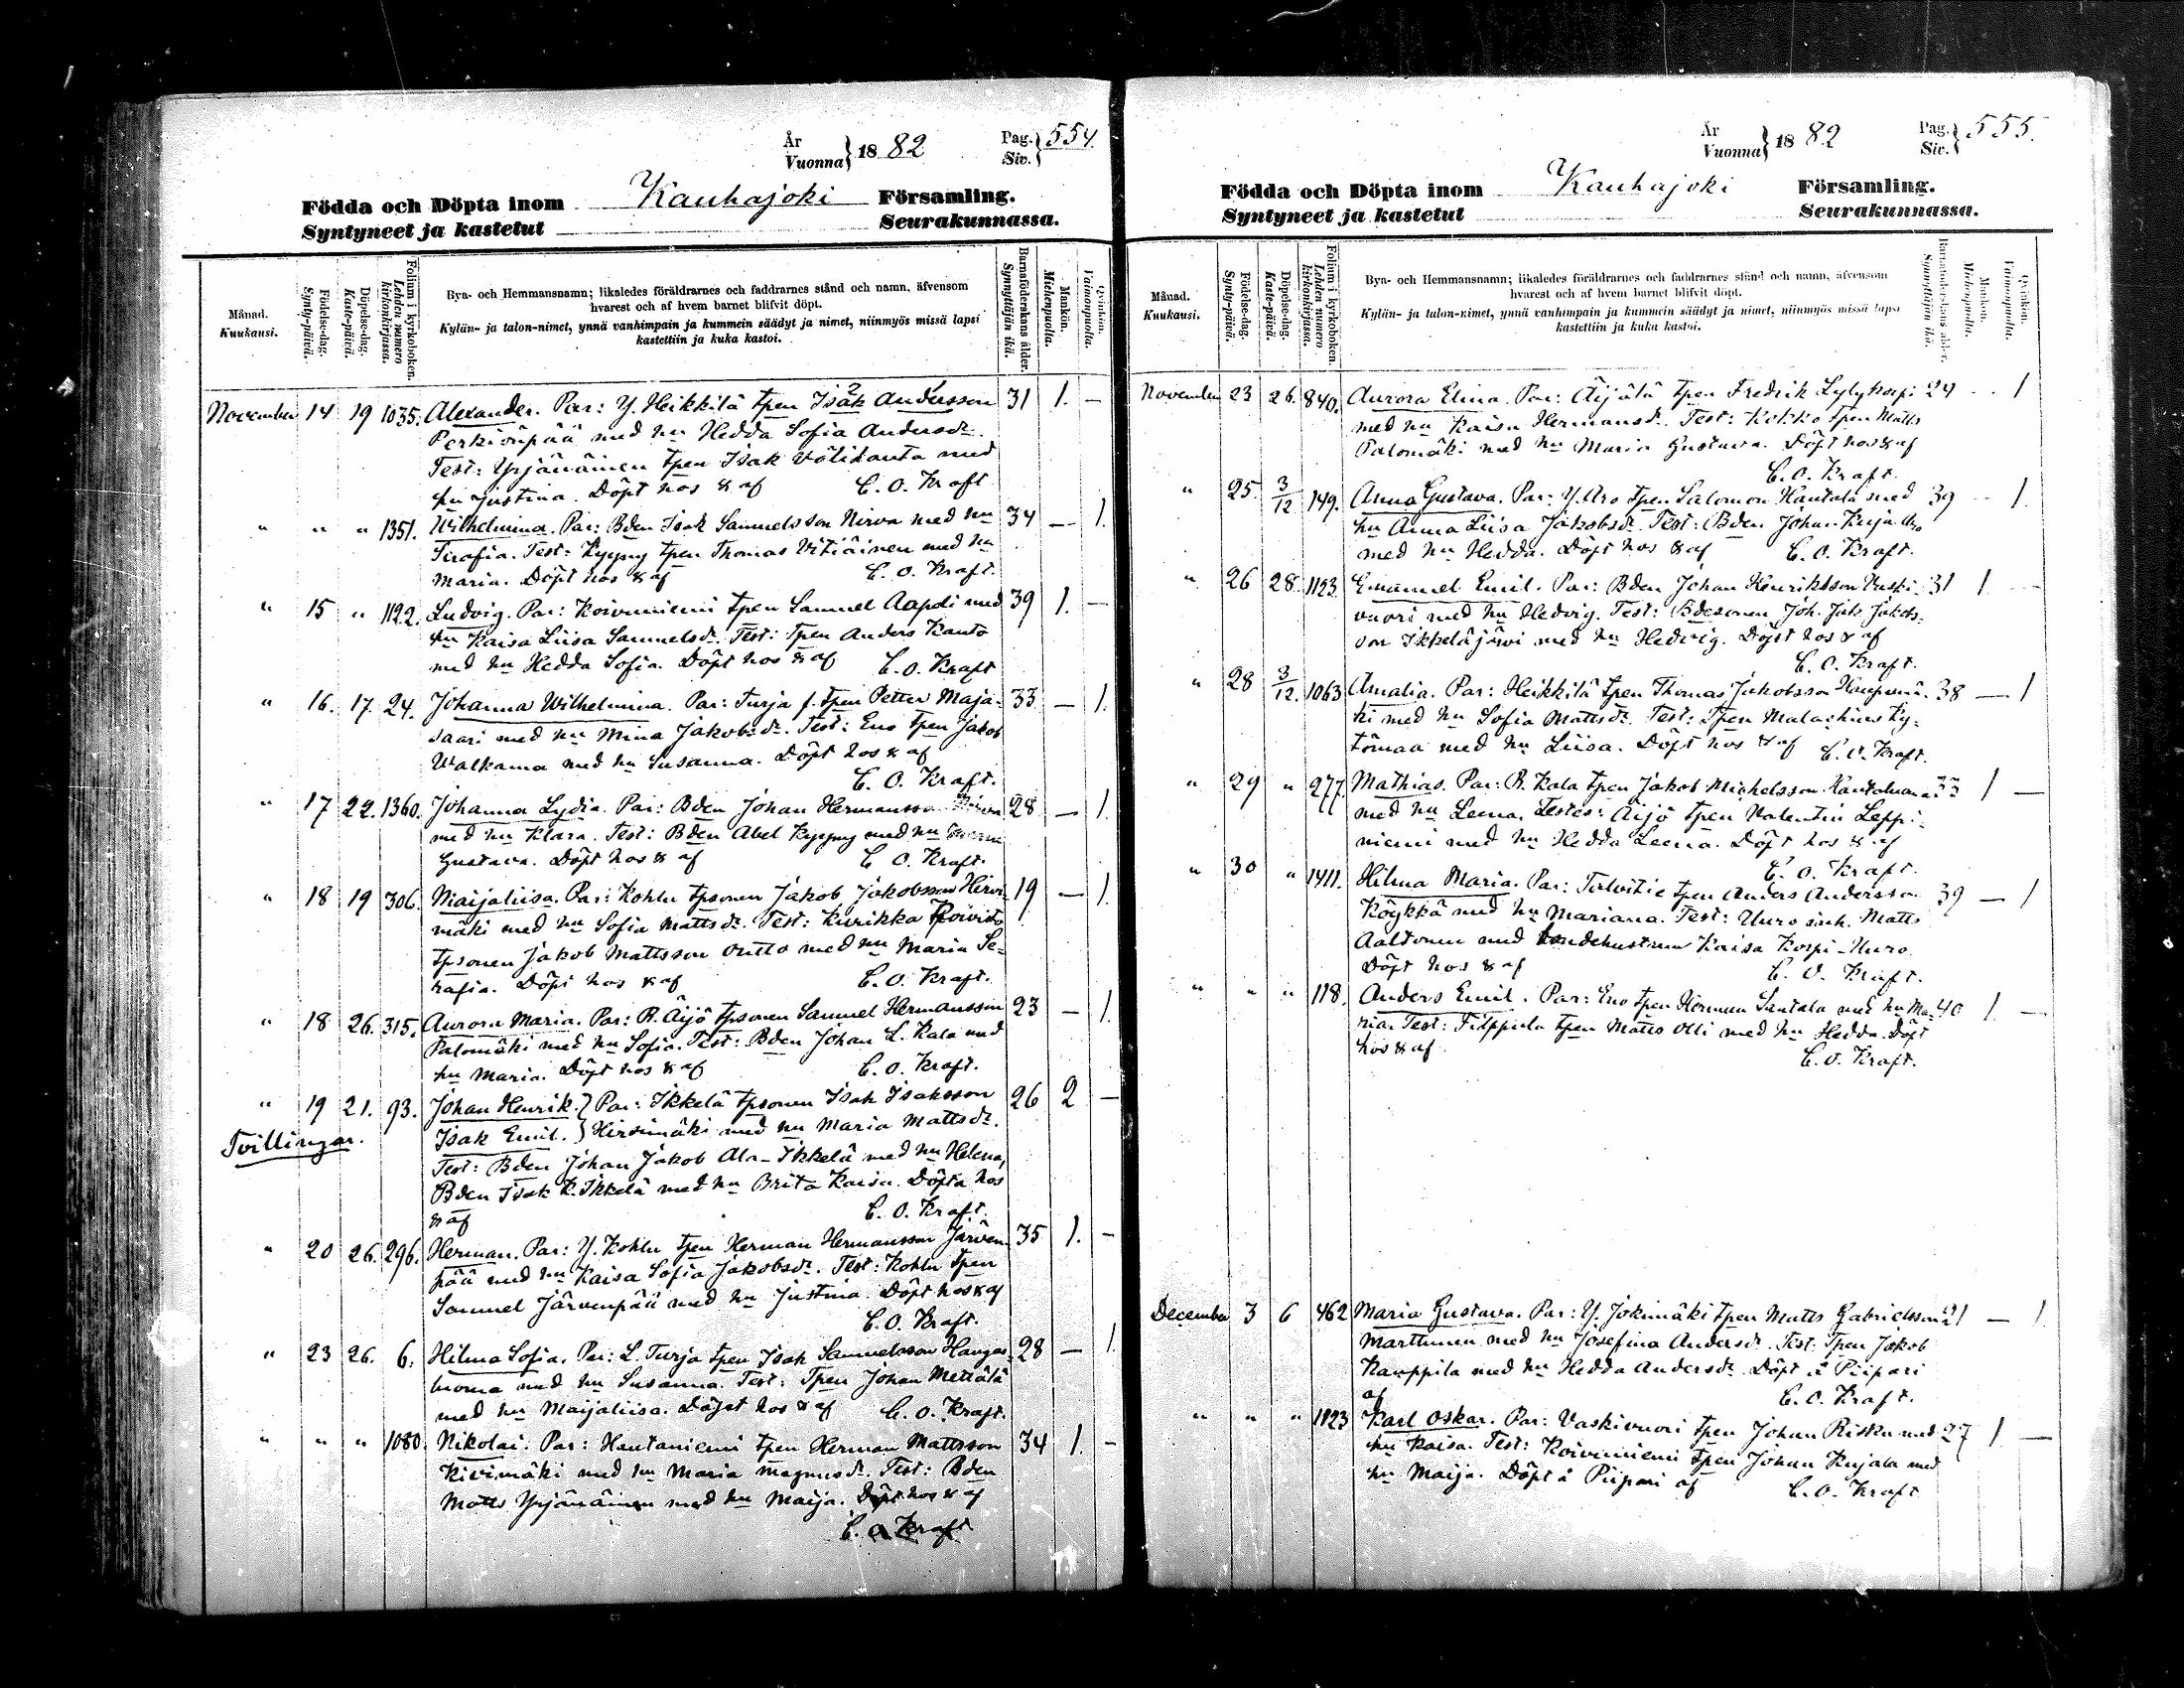 År
Vuonna } 18 82
Pag.
Siv. } 554.
Födda och Döpta inom Kauhajoki Församling.
Syntyneet ja kastetut Seurakunnassa.
Månad.
Kuukausi.
Födelse-dag.
Synty-päivä.
Döpelse-dag.
Kaste-päivä.
Folium i kyrkoboken.
Lehden numero kirkonkirjassa.
Bya- och Hemmansnamn; likaledes föräldrarnes och faddrarnes stånd och namn, äfvensom
hvarest och af hvem barnet blifvit döpt.
Kylän- ja talon-nimet, ynnä vanhimpain ja kummein säädyt ja nimet, niinmyös missä lapsi
kastettiin ja kuka kastoi.
Barnaföderskans ålder.
Synnyttäjän ikä.
Mankön.
Miehenpuolia.
Qvinkön.
Vaimonpuolia.
November 14 19 1035. Alexander. Par: Y. Heikkilä tpen Isak Andersson 31 1. —
Perkiönpää med hu Hedda Sofia Andersdr.
Test: Yrjänäinen tpen Isak Välitanta med
hu Justina. Döpt hos & af C. O. Kraft
" " " 1351. Wilhelmina. Par: Bden Isak Samuelsson Nirva med hu 34 — 1.
Serafia. Test: Kyyny tpen Thomas Vitiäinen med hu
Maria. Döpt hos & af C. O. Kraft.
" 15 " 1122. Ludvig. Par: Koivuniemi tpen Samuel Aapdi med 39 1. —
hu Kaisa Liisa Samuelsdr. Test: Tpen Anders Kanto
med hu Hedda Sofia. Döpt hos & af C. O. Kraft
" 16. 17. 24. Johanna Wilhelmina. Par: Turja f. tpen Petter Maja- 33 — 1.
saari med hu Mina Jakobsdr. Test: Eno tpen Jakob
Walkama med hu Susanna. Döpt hos & af
C. O. Kraft.
" 17 22. 1360. Johanna Lydia. Par: Bden Johan Hermansson 28 — 1.
med hu Klara. Test: Bden Abel Kyyny med hu
Gustava. Döpt hos & af C. O. Kraft.
" 18 19 306. Maijaliisa. Par: Kohlu tpsonen Jakob Jakobsson Hirvi- 19 — 1.
mäki med hu Sofia Mattsdr. Test: Kurikka Koivisto
tpsonen Jakob Mattsson Outto med hu Maria Se-
rafia. Döpt hos & af C. O. Kraft.
" 18 26. 315. Aurora Maria. Par: R. Äijö tpsonen Samuel Hermansson 23 — 1.
Palomäki med hu Sofia. Test: Bden Johan L. Kala med
hu Maria. Döpt hos & af C. O. Kraft.
" 19 21. 93. Johan Henrik. } Par: Ikkelä tpsonen Isak Isaksson 26 2 —
Tvillingar. Isak Emil. } Hirsimäki med hu Maria Mattsdr.
Test: Bden Johan Jakob Ala-Ikkelä med hu Helena,
Bden Isak K. Ikkelä med hu Brita Kaisa. Döpta hos
& af C. O. Kraft.
" 20 26. 296. Herman. Par: Y. Kohlu tpen Herman Hermansson Järven- 35 1. —
pää med hu Kaisa Sofia Jakobsdr. Test: Kohlu tpen
Samuel Järvenpää med hu Justina. Döpt hos & af
C. O. Kraft.
" 23 26. 6. Hilma Sofia. Par: L. Turja tpen Isak Samuelsson Hangas- 28 — 1.
luoma med hu Susanna. Test: Tpen Johan Mettälä
med hu Maijaliisa. Döpt hos & af C. O. Kraft.
" " " 1080. Nikolai. Par: Hautaniemi tpen Herman Mattsson 34 1. —
Kivimäki med hu Maria Magnusdr. Test: Bden
Matts Yrjänäinen med hu Maija. Döpt hos & af
C. O. Kraft
År
Vuonna } 18 82
Pag.
Siv. } 555.
Födda och Döpta inom Kauhajoki Församling.
Syntyneet ja kastetut Seurakunnassa.
Månad.
Kuukausi.
Födelse-dag.
Synty-päivä.
Döpelse-dag.
Kaste-päivä.
Folium i kyrkoboken.
Lehden numero kirkonkirjassa.
Bya- och Hemmansnamn; likaledes föräldrarnes och faddrarnes stånd och namn, äfvensom
hvarest och af hvem barnet blifvit döpt.
Kylän- ja talon-nimet, ynnä vanhimpain ja kummein säädyt ja nimet, niinmyös missä lapsi
kastettiin ja kuka kastoi.
Barnaföderskans ålder.
Synnyttäjän ikä.
Mankön.
Miehenpuolia.
Qvinkön.
Vaimonpuolia.
November 23 26. 840. Aurora Elina. Par: Äijälä tpen Fredrik Lylykorpi 24 — 1
med hu Kaisa Hermansdr. Test: Kokko tpen Matts
Palomäki med hu Maria Gustava. Döpt hos & af
C. O. Kraft.
" 25. 3/12 149. Anna Gustava. Par: Y. Aro tpen Salomon Hautala med 39 — 1.
hu Anna Liisa Jakobsdr. Test: Bden Johan Kuja-Aro
med hu Hedda. Döpt hos & af C. O. Kraft.
" 26 28. 1123. Emanuel Emil. Par: Bden Johan Henriksson Vaski- 31 1 —
vuori med hu Hedvig. Test: Bdesonen Joh. Jak. Jakobs-
son Ikkeläjärvi med hu Hedvig. Döpt hos & af
C. O. Kraft.
" 28 3/12. 1063 Amalia. Par: Heikkilä tpen Thomas Jakobsson 38 — 1
ki med hu Sofia Mattsdr. Test: Tpen Malachius Ky-
tömaa med hu Liisa. Döpt hos & af C. O. Kraft.
" 29 " 277. Mathias. Par: R. Kala tpen Jakob Michelsson Kantoluoma 33 1 —
med hu Leena. Testes: Äijö tpen Valentin Leppi-
niemi med hu Hedda Leena. Döpt hos & af
C. O. Kraft.
" 30 " 1411. Hilma Maria. Par: Talvitie tpen Anders Andersson 39 — 1
Köykkä med hu Mariana. Test: Uuro enk. Matts
Aaltonen med bondehustrun Kaisa Korpi-Uuro.
Döpt hos & af C. O. Kraft.
" " " 118. Anders Emil. Par: Eno tpen Herman Santala med hu Ma- 40 1. —
ria. Test: Filppula tpen Matts Olli med hu Hedda. Döpt
hos & af C. O. Kraft.
December 3 6 462 Maria Gustava. Par: Y. Jokimäki tpen Matts Gabrielsson 21 — 1
Marttinen med hu Josefina Andersdr. Test: Tpen Jakob
Kauppila med hu Hedda Andersdr. Döpt å Piipari
af C. O. Kraft.
" " " 1123 Karl Oskar. Par: Vaskivuori tpen Johan Risku med 27 1 —
hu Kaisa. Test: Koivuniemi tpen Johan Kujala med
hu Maija. Döpt å Piipari af C. O. Kraft